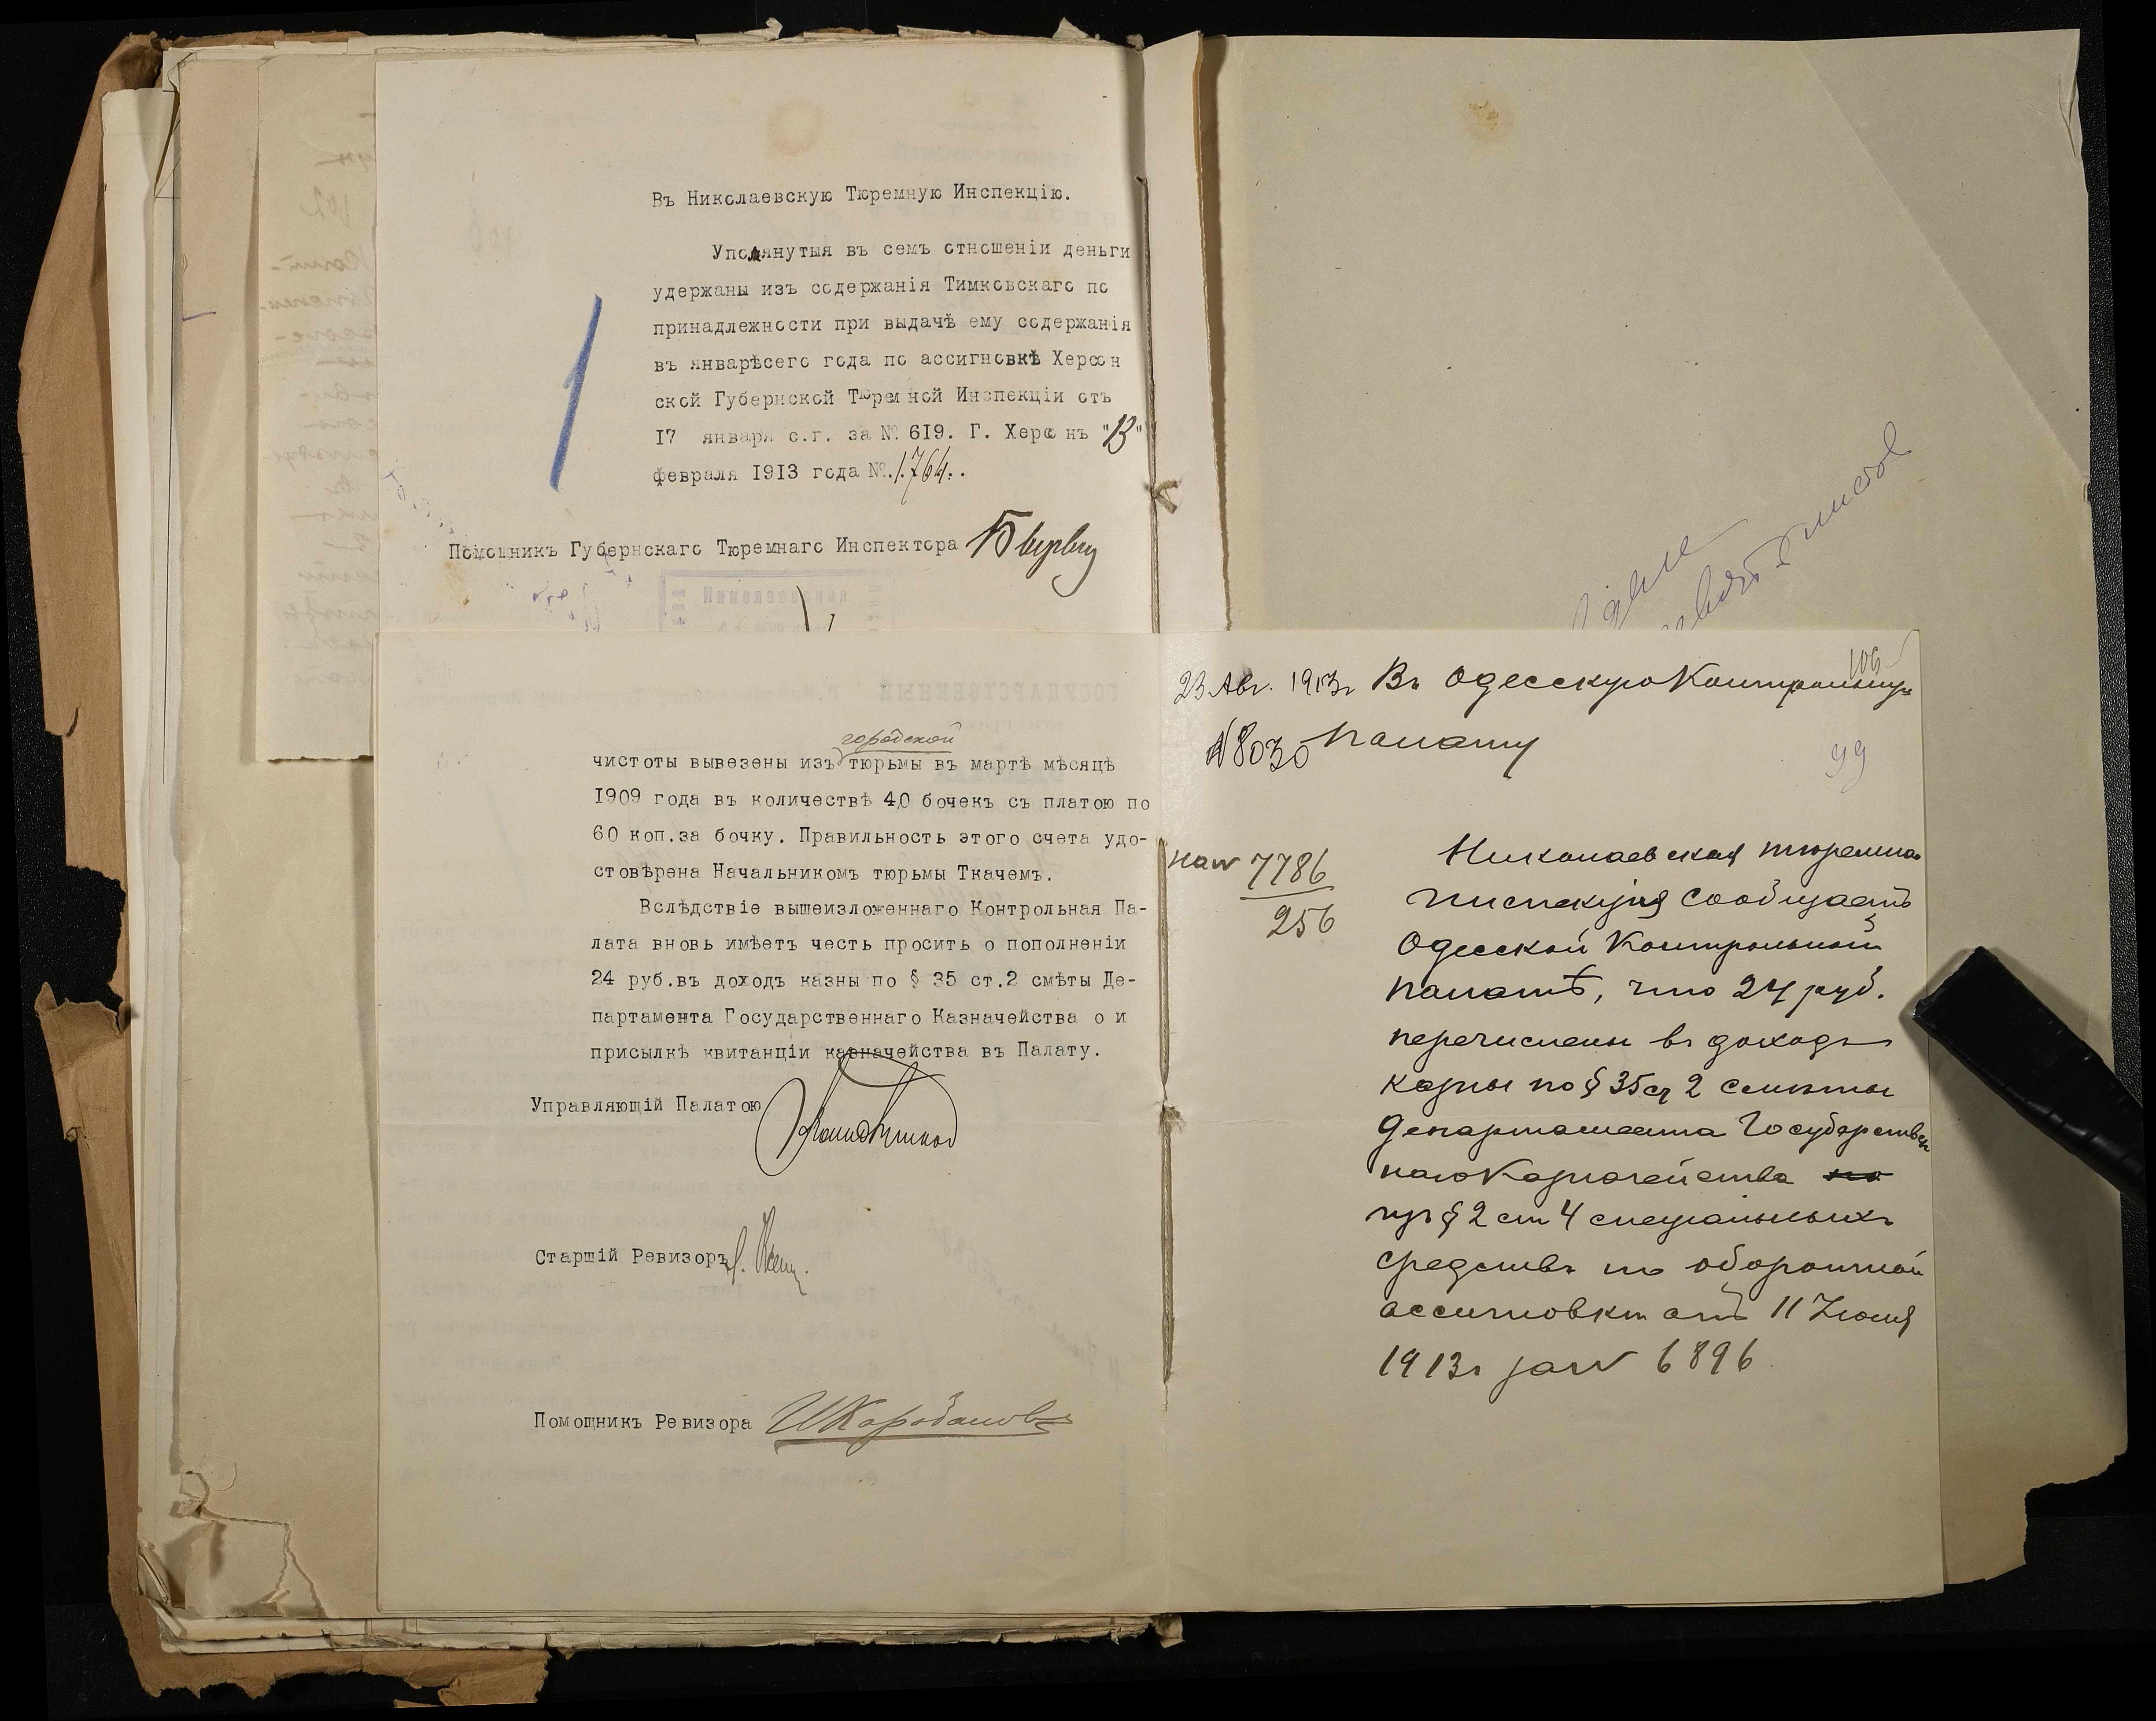 Въ Николаевскую Тюремную Инспекцію.
Упомянутыя въ семъ отношеніи деньги
удержаны изъ содержанія Тимковскаго по
принадлежности при выдачѣ ему содержанія
въ январѣсего года по ассигновкѣ Херсон
ской Губернской Тюремной Инспекціи отъ
17 января с.г. за № 619. Г. Херсонъ "13"
февраля 1913 года №.1764..
Помощникъ Губернскаго Тюремнаго Инспектора
городской
чистоты вывезены изъ тюрьмы въ мартѣ мѣсяцѣ
1909 года въ количествѣ 40 бочекъ съ платою по
60 коп.за бочку. Правильность этого счета удо-
стовѣрена Начальникомъ тюрьмы Ткачемъ.
Вслѣдствіе вышеизложеннаго Контрольная Па-
лата вновь имѣетъ честь просить о пополненіи
24 руб.въ доходъ казны по § 35 ст.2 смѣты Де-
партамента Государственнаго Казначейства о и
присылкѣ квитанціи казначейства въ Палату.
Управляющій Палатою
Старшій Ревизоръ
Помощникъ Ревизора
106
23 Авг. 1913г Въ Одесскую Контрольную
№ 8030 Палату
99
на № 7786
256
Николаевская тюремная
Инспекція сообщаетъ
Одесской Контрольной
Палатѣ, что 24 руб.
перечислены въ доходъ
казны по § 35 ст 2 смѣты
Департамента Государствен
наго Казначейства по
изъ § 2 ст 4 спеціальныхъ
средствъ по оборотной
ассигновкѣ отъ 11 Іюня
1913г за № 6896